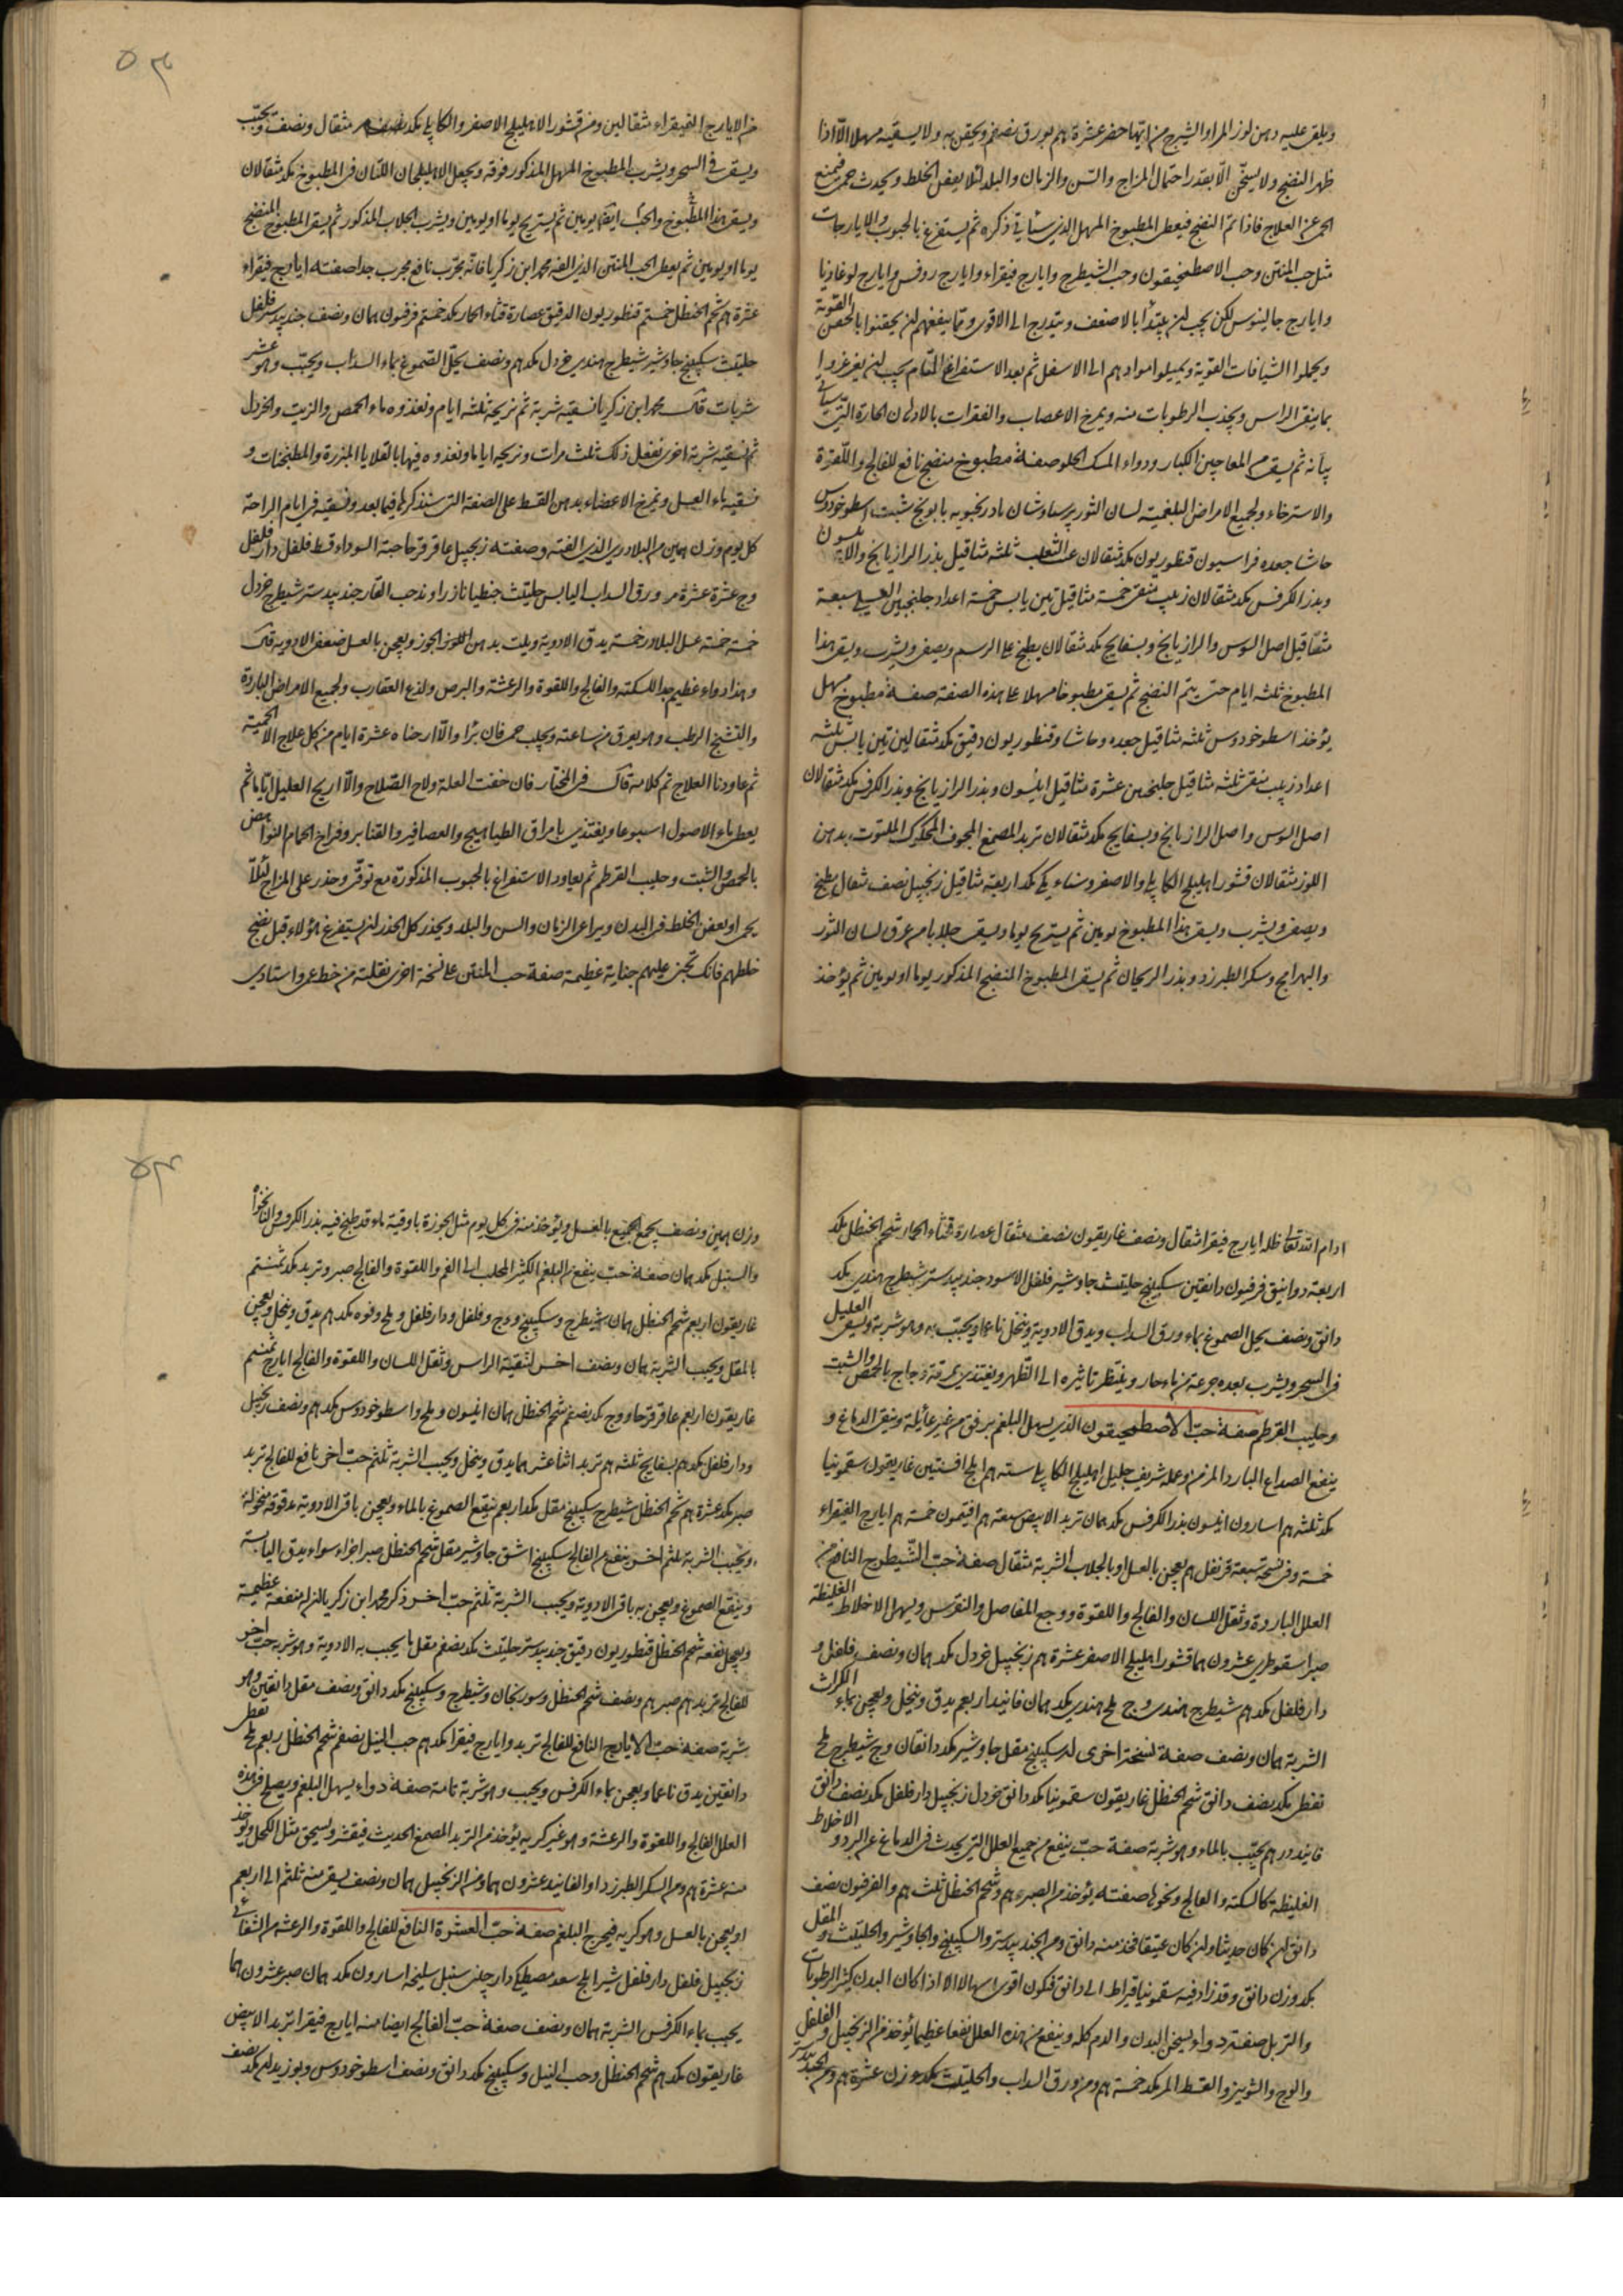 ويلقى عليه دهن لوز المر او الشيرج من ايهما حضر عشرة هم بورق نصفهم ويحقن به ولا يسقيه مسهلا الّا اذا
ظهر النضج ولا يسخّن الّا بقدر احتمال المزاج والسّن والزمان والبلد لئلا يعفن الخلط ويحدث حمى فيمنع
الحمى عن العلاج فاذا تمّ النضج فيعطى المطبوخ المسهل الذى سيأتى ذكره ثم يستفرغ بالحبوب والايارجات
مثل حب المنتن وحب الاصطمخيقون وحب الشيطرج وايارج فيقراء وايارج روفس وايارج لوغاذيا
وايارج جالينوس لكن يجب ان يبتدأ بالاضعف ويتدرج الى الاقوى ومما ينفعهم ان يحقنوا بالحقن القوية
ويحملوا الشيافات القوية ويميلوا موادهم الى الاسفل ثم بعد الاستفراغ التام يجب ان يغرغروا
بما ينقى الراس ويجذب الرطوبات منه ويمرخ الاعصاب والفقرات بالادهان الحارة التى سيأتى
بيانه ثم يسقى من المعاجين الكبار ودواء المسك الحلو صفة مطبوخ منضج نافع للفالج واللقوة
والاسترخاء ولجميع الامراض البلغمية لسان الثور پرسياوشان بادرنجبويه بابونج شبت اسطوخودوس
حاشا جعده فراسيون قنطوريون مكد مثقالان عنب الثعلب ثلثه مثاقيل بذر الرازيانج والانيسون
وبذر الكرفس مكد مثقالان زبيب منقى خمسة مثاقيل تين يابس خمسة اعداد جلنجبين العسلى سبعة
مثقاقيل اصل السوس والرازيانج وبسفايج مكد مثقالان يطبخ على الرسم ويصفى ويشرب ويسقى هذا
المطبوخ ثلثه ايام حتى يتم النضج ثم يسقى مطبوخا مسهلا على هذه الصفة صفة مطبوخ مسهل
يؤخذ اسطوخودوس ثلثه مثاقيل جعده وحاشا وقنطوريون دقيق مكد مثقالين تين يابس ثلثه
اعداد زبيب منقى ثلثه مثاقيل جلنجبين عشرة مثاقيل انيسون وبذر الرازيانج وبذر الكرفس مكد مثقالان
اصل السوس واصل الرازيانج وبسفايج مكد مثقالان تربد المصمغ المجوف المحكوك الملتوت بدهن
اللوز مثقالان قشور اهليلج الكابلى والاصفر وسناء مكى مكد اربعة مثاقيل زنجبيل نصف مثقال يطبخ
ويصفى ويشرب ويسقى هذا المطبوخ يومين ثم يستريح يوما ويسقى جلابا من عرق لسان الثور
والبهرامج وسكر الطبرزد وبذر الريحان ثم يسقى المطبوخ المنضج المذكور يوما او يومين ثم يؤخذ
من الايارج الفيقراء مثقالين ومن قشور الاهليلج الاصفر والكابلى مكد نصف مثقال ونصف ويحبّب
ويسقى فى السحر ويشرب المطبوخ المسهل المذكور فوقه ويجعل الاهليلجان اللتان فى المطبوخ مكد مثقالان
ويسقى هذا المطبوخ والحبّ ايضا يومين ثم يستريح يوما او يومين ويشرب الجلاب المذكور ثم يسقى المطبوخ المنضج
يوما او يومين ثم يعطى الحب المنتن الذى الفه محمد ابن زكريا فانه مجرّب نافع مجرب جدا صفته ايارج فيقراء
عشرة هم شحم الحنظل خمستم قنطوريون الدقيق عصارة قثاء الحمار مكد خمستم فرفيون همان ونصف جندبيدستر فلفل
حلتيت سكبينج جاوشير شيطرج هندى خردل مكد هم ونصف يحلّ الصموغ بماء السداب ويحبّب وهو عشر
شربات قال محمد ابن زكريا نسقيه شربة ثم نريحه ثلثه ايام ونغذوه بماء الحمص والزيت والخردل
ثم نسقيه شربة اخرى نفعل ذلك ثلث مرات ونريحه اياما ونغذوه فيها بالقلايا المبزرة والمطجنات و
نسقيه ماء العسل ونمرخ الاعضاء بدهن القسط على الصفة التى سنذكرها فيما بعد ونسقيه فى ايام الراحة
كل يوم وزن همين من البلادرى الذى الفته وصفته زنجبيل عاقرقرحا حبة السوداء قسط فلفل دارفلفل
وج عشرة عشرة هم ورق السداب اليابس حلتيت جنطيانا زراوند حب الغار جندبيدستر شيطرج خردل
خمسة خمسة عسل البلادر خمسة يدق الادوية ويلت بدهن اللوز الجوز ويعجن بالعسل ضعف الادوية قال
وهذا دواء عظيم جدا للسكتة والفالج واللقوة والرعشة والبرص ولذع العقارب ولجميع الامراض الباردة
والتشنج الرطب وهو يعرق من ساعته ويجلب حمى فان برأ والّا ارحناه عشرة ايام من كل علاج الا الحمية
ثم عاودنا العلاج تم كلامه قال فى المختار فان خفت العلة ولاح الصلاح والّا اريح العليل ايّاما ثم
يعطى ماء الاصول اسبوعا ويغتذى بامراق الطياهيج والعصافير والقنابر وفراخ الحمام النواهض
بالحمص والشبت وحليب القرطم ثم يعاود الاستفراغ بالحبوب المذكورة مع توقّى وحذر على المزاج لئلّا
يحمى او يعفن الخلط فى البدن ويراعى الزمان والسن والبلد ويحذر كل الحذر ان يستفرغ هؤلاء قبل نضج
خلطهم فانك تجنى عليهم جناية عظيمة صفة حب المنتن على نسخة اخرى نقلته من خط عمى واستادى
ادام الله تعالى ظله ايارج فيقرا مثقال ونصف غاريقون نصف مثقال عصارة قثاء الحمار شحم الحنظل مكد
اربعة دوانيق فرفيون دانقين سكبينج حلتيت جاوشير فلفل الاسود جندبيدستر شيطرج هندى مكد
دانق ونصف يحل الصموغ بماء ورق السداب ويدق الادوية وينخل ناعما ويحبّب به وهو شربة ويسقى العليل
فى السحر ويشرب بعده جرعة من ماء حار وينتظر تاثيره الى الظهر ويغتذى بمرقة دجاج بالحمص والشبت
وحليب القرطم صفة حبّ الاصطمحيقون الذى يسهل البلغم برفق من غير غائلة وينقى الدماغ و
ينفع الصداع البارد المزمن وعله شريف جليل اهليلج الكابلى ستة هم املج افسنتين غاريقون سقمونيا
مكد ثلثه هم اسارون انيسون بذر الكرفس مكد همان تربد الابيض سبعة هم افتيمون خمسة هم ايارج الفيقراء
خمسة وفى نسخة تسعة قرنفل هم يعجن بالعسل او بالجلاب الشربة مثقال صفة حبّ الشيطرج النافع من
العلل الباردة وثقل اللسان والفالج واللقوة ووجع المفاصل والنقرس ويسهل الاخلاط الغليظة
صبر اسقوطرى عشرون هما قشور اهليلج الاصفر عشرة هم زنجبيل خردل مكد همان ونصف فلفل و
دارفلفل مكد هم شيطرج هندى وج ملح هندى مكد همان فانيد اربعم يدق وينخل ويعجن بماء الكراث
الشربة همان ونصف صفة نسخة اخرى له سكبينج مقل جاوشير مكد دانقان وج شيطرج ملح
نفطى مكد نصف دانق شحم الحنظل غاريقون سقمونيا مكد دانق خردل زنجبيل دارفلفل مكد نصف دانق
فانيد درهم يحبّب بالماء وهو شربة صفة حبّ ينفع من جميع العلل التى يحدث فى الدماغ عن البرد والاخلاط
الغليظة كالسكتة والفالج ونحوها صفته يؤخذ من الصبر هم وشحم الحنظل ثلث هم والفرفيون نصف
دانق ان كان حديثا وان كان عتيقا فخذ منه دانق ومن الجندبيدستر والسكبينج والجاوشير والحلتيت والمقل
مكد وزن دانق وقد زاد فيه سقمونيا قيراط الى دانق فتكون اقوى اسهالا الا اذا كان البدن كثير الرطوبات
والتربل صفة دواء يسخن البدن والدم كله وينفع من هذه العلل نفعا عظيما يؤخذ من الزنجبيل والفلفل
والوج والشونيز والقسط المر مكد خمسة هم ومن ورق السداب والحلتيت مكد وزن عشرة هم ومن الجندبيدستر
وزن همين ونصف يجمع الجميع بالعسل ويؤخذ منه فى كل يوم مثل الجوزة باوقية ماء قد طبخ فيه بذر الكرفس والنانخواه
والسنبل مكد همان صفة حبّ ينفع من البلغم الكثير المحلب الى الفم واللقوة والفالج صبر وتربد مكد ثمنستم
غاريقون اربعم شحم الحنظل همان شيطرج وسكبينج ووج وفلفل ودارفلفل وملح وفوه مكد هم يدق وينخل ويعجن
بالمقل ويحبب الشربة همان ونصف اخرى لتنقية الراس وثقل اللسان واللقوة والفالج ايارج ثمنستم
غاريقون اربعم عاقرقرحا ووج مكد نصفم شحم الحنظل همان انيسون وملح واسطوخودوس مكد هم ونصف زنجبيل
ودارفلفل مكد هم بسفايج ثلثه هم تربد اثنا عشر هما يدق وينخل ويحبب الشربة ثلثم حبّ اخر نافع للفالج تربد
صبر مكد عشرة هم شحم الحنظل شيطرج سكبينج مقل مكد اربعم ينقع الصموغ بالماء ويعجن باقى الادوية مدقوقة منخولة
ويحبب الشربة ثلثم اخرى ينفع من الفالج سكبينج اشق جاوشير مقل شحم الحنظل صبر اجزاء سواء يدق اليابسة
وينقع الصموغ ويعجن به باقى الادوية ويحبب الشربة ثلثم حبّ اخر ذكر محمد ابن زكريا الرازى منفعة عظيمة
ويعجل نفعه شحم الحنظل قنطوريون دقيق جندبيدستر حلتيت مكد نصفم مقل ما يحبب به الادوية وهو شربة حبّ اخر
للفالج تربد هم صبر هم ونصف شحم الحنظل وسورنجان وشيطرج وسكبينج مكد دانق ونصف مقل دانقين وهو
شربة صفة حبّ الايارج النافع للفالج تربد وايارج فيقرا مكد هم حب النيل نصفم شحم الحنظل ربعم ملح نفطى
دانقين يدق ناعما ويعجن بماء الكرفس ويحبب وهو شربة تامة صفة دواء يسهل البلغم ويصلح فى هذه
العلل الفالج واللقوة والرعشة وهو غير كريه يؤخذ من التربد المصمغ الحديث فيقشر ويسحق مثل الكحل ويؤخذ
منه عشرة هم ومن السكر الطبرزد او الفانيد عشرون هما ومن الزنجبيل همان ونصف يسقى منه ثلثم الى اربعم
او يعجن بالعسل وهو كريه فيخرج البلغم صفة حبّ العشرة النافع للفالج واللقوة والرعشه من الشفائى
زنجبيل فلفل دارفلفل شير املج سعد مصطكى دارچينى سنبل سليخه اسارون مكد همان صبر عشرون هما
يحبب بماء الكرفس الشربة همان ونصف صفة حبّ الفالج ايضا منه ايارج فيقرا تربد الابيض
غاريقون مكد هم شحم الحنظل وحب النيل وسكبينج مكد دانق ونصف اسطوخودوس وبوزيدان مكد نصف